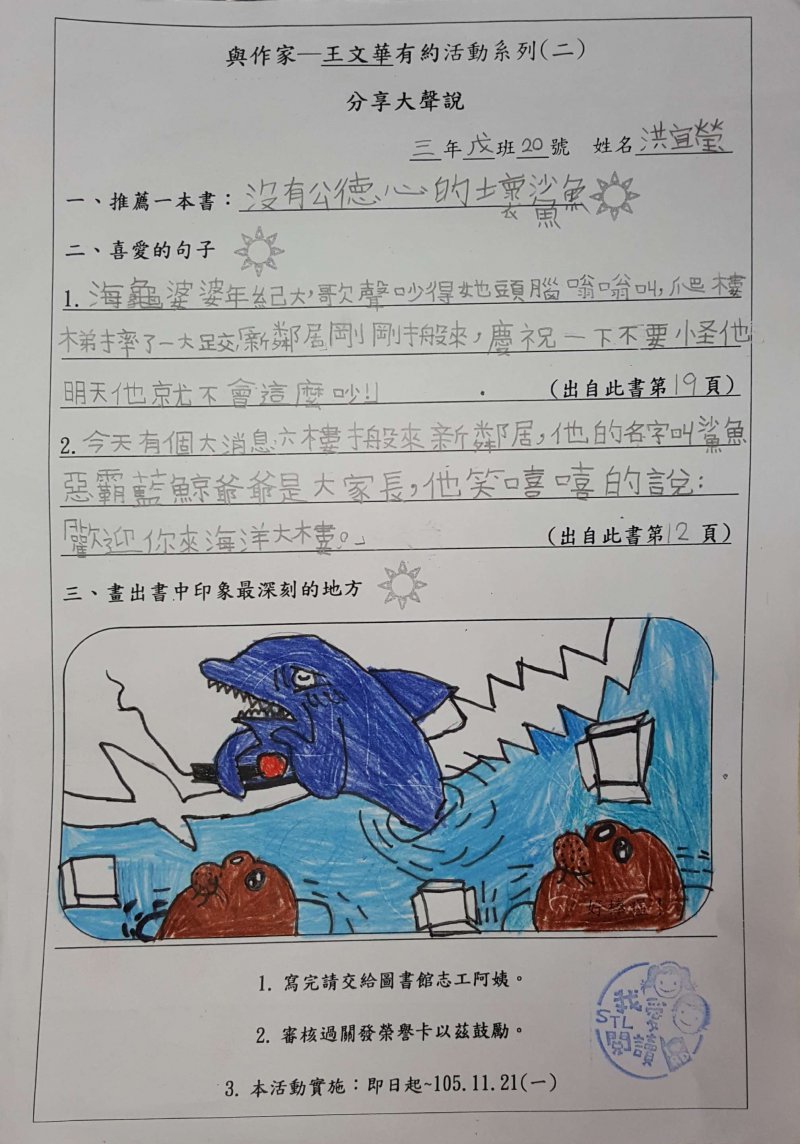 與作家─王文華有約活動系列(二)
分享大聲說
三年戊班20號 姓名洪宜瑩
一、推薦一本書：沒有公德心的壞鯊魚
二、喜愛的句子
1. 海龜婆婆年紀大，歌聲吵得她頭腦嗡嗡叫，爬樓
梯摔了一大跤，新鄰居剛剛搬來，慶祝一下不要小怪他
明天他就不會這麼吵!!」
(出自此書第19頁)
2. 今天有個大消息六樓搬來新鄰居，他的名字叫鯊魚
惡霸藍鯨爺爺是大家長，他笑嘻嘻的說：
「歡迎你來海洋大樓。」
(出自此書第12頁)
三、畫出書中印象最深刻的地方
1. 寫完請交給圖書館志工阿姨。
2. 審核過關發榮譽卡以茲鼓勵。
3. 本活動實施：即日起~105.11.21(一)
我愛
STL
閱讀